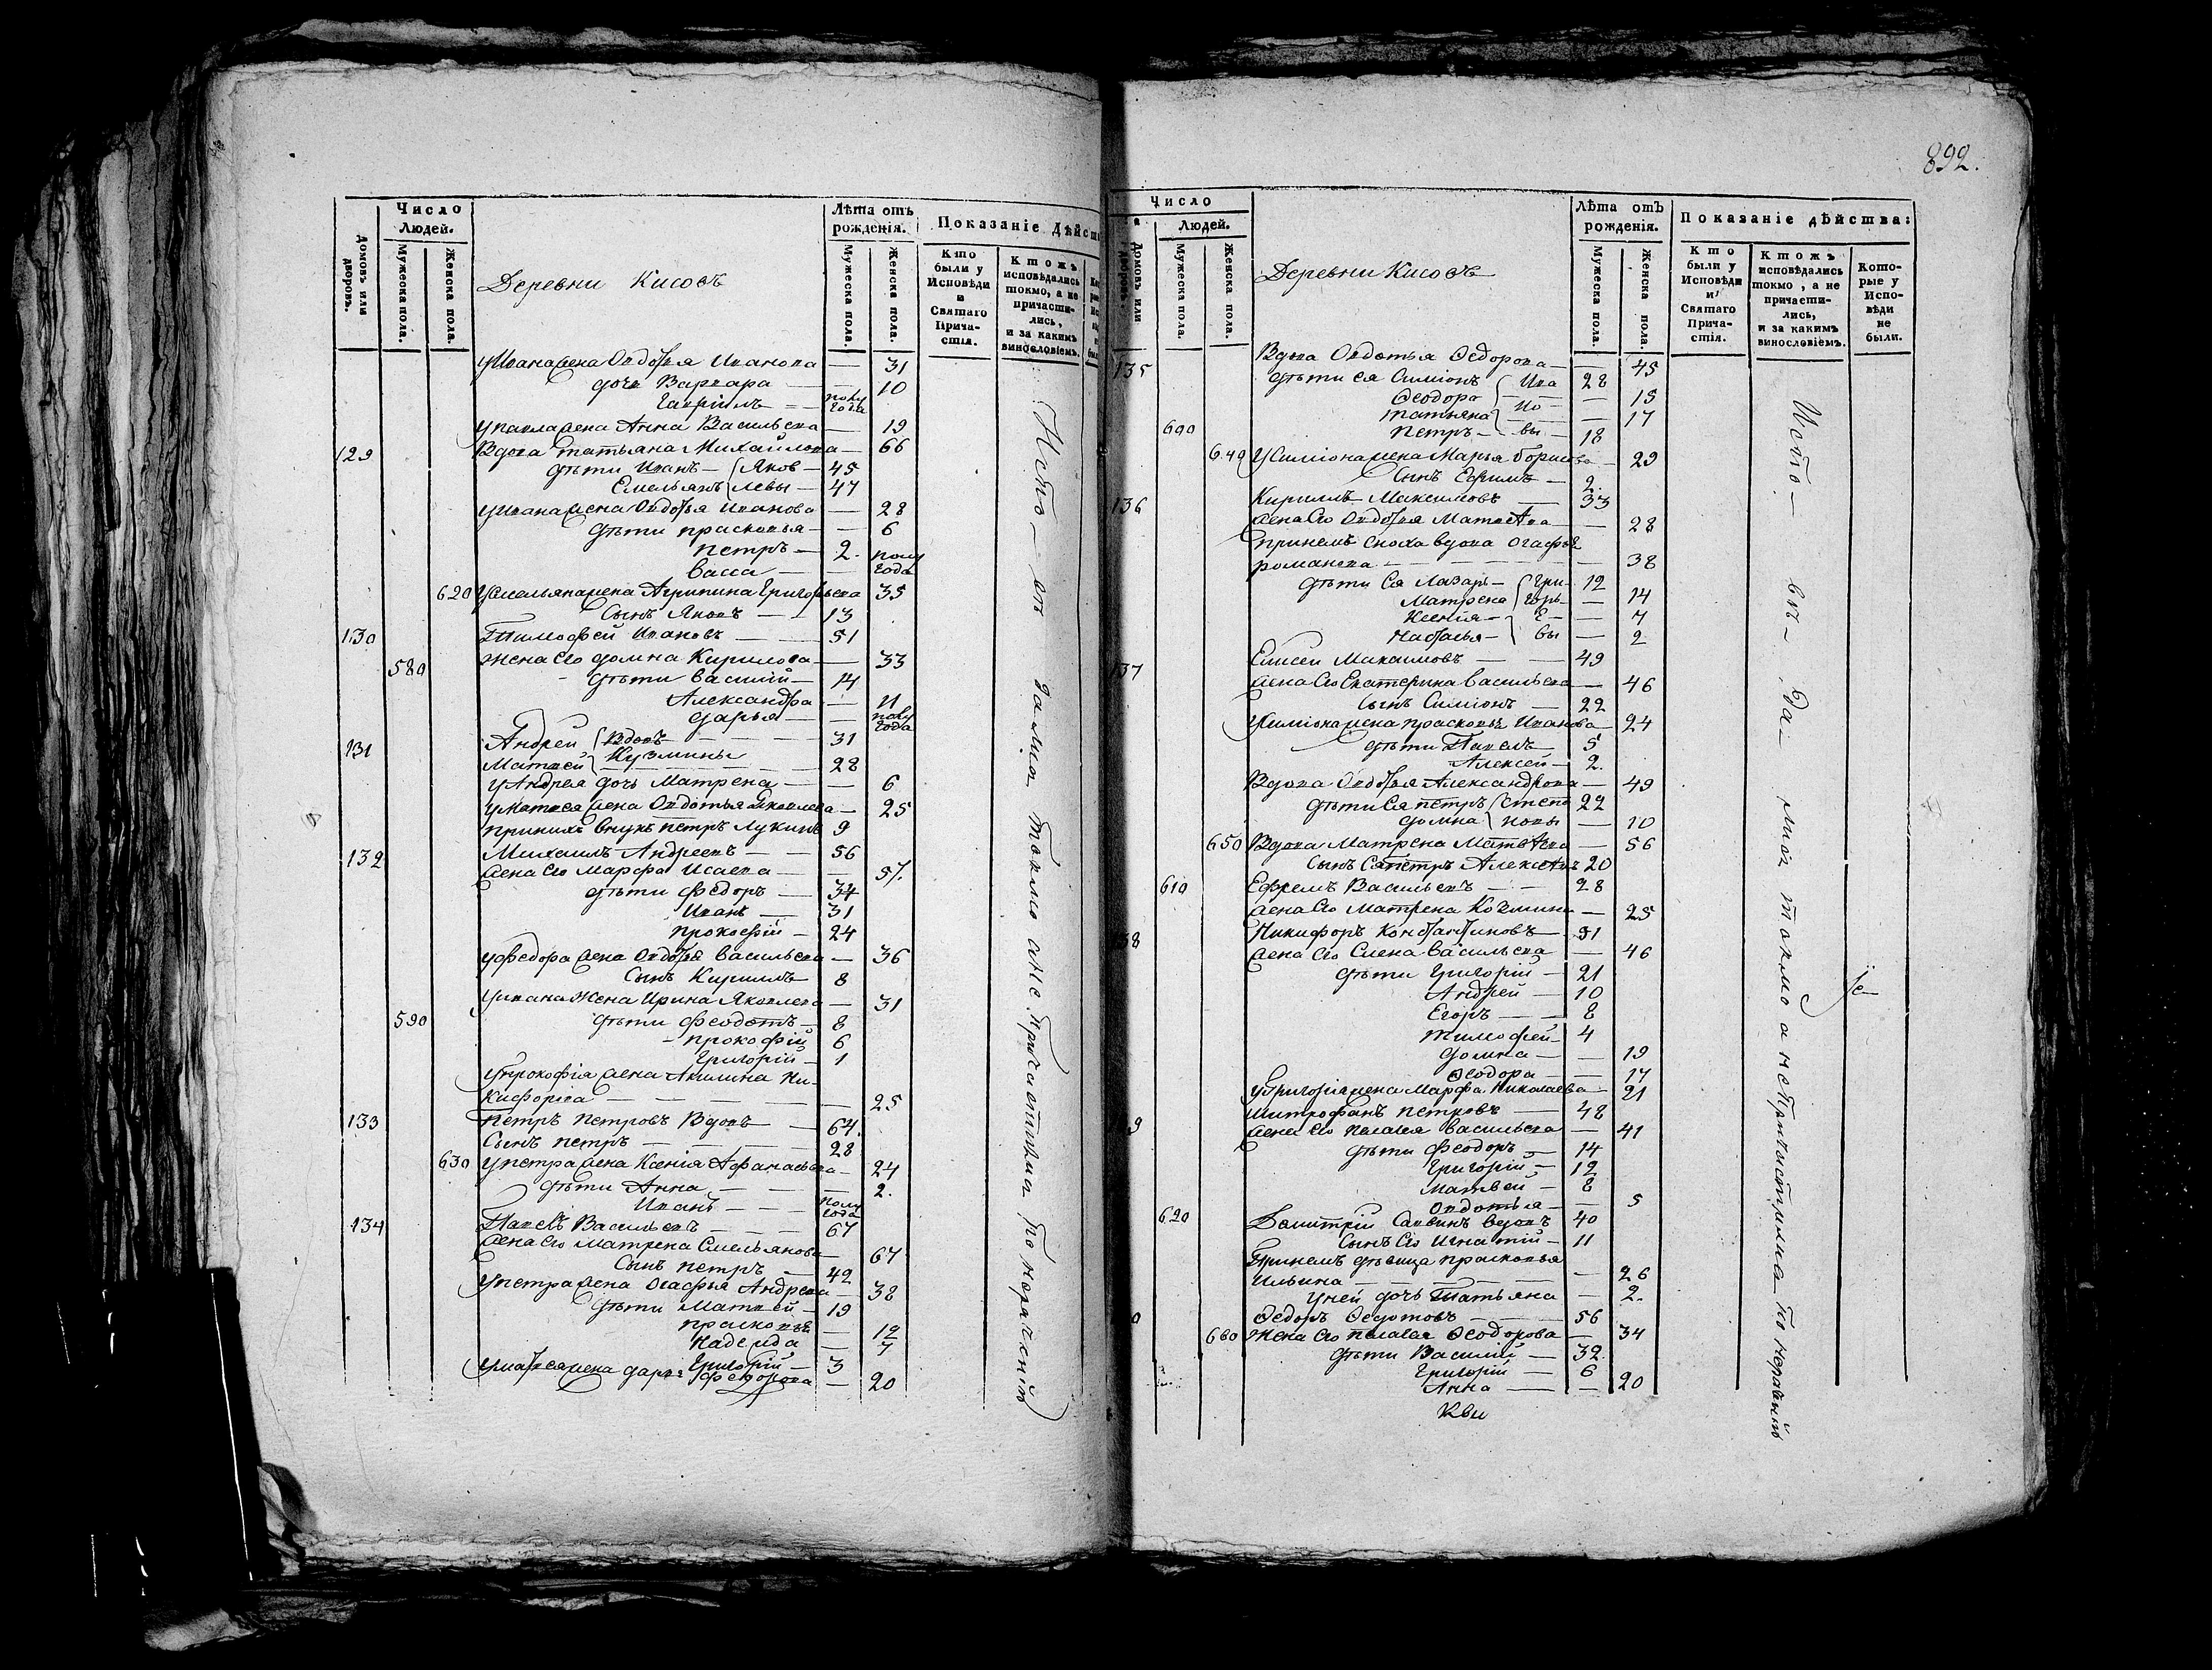 892.
Число
Людей.
Домовъ или дворовъ.
Мужеска пола.
Женска пола.
Деревни Кисовъ
Лѣта отъ рожденія.
Мужеска пола.
Женска пола.
Показаніе Дѣйст
Кто были у Исповѣди и Святаго Прича-стія.
Ктожъ исповѣдались токмо, а не причасти-лись, и за какимъ винословіемъ.
У Ивана жена Овдотья Иванова — 31
дочь Варвара — 10
Гаврiилъ — полу года
У павла жена Анна Васильева — 19
129 Вдова Татьяна Михайлова — 66
дѣти Иванъ — Яков — 45
Емельянъ левы — 47
У Ивана жена Овдотья Иванова — 28
дѣти прасковья — 6
петръ — 2.
васса — полу года
620 У Емельяна жена Агрипина Григорьева 35
Сынъ Яковъ — 13
130 Тимофей Ивановъ — 51
580 Жена Его домна Кирилова — 33
дѣти василий — 14
Александра — 11
дарья — полу года
131 Андрей Вдовъ — 31
Матвей Кузмины — 28
У Андрея дочь Матрена — 6
У Матвея жена Овдотья Яковлева — 25
принихъ внукъ петръ Лукинъ 9
132 Михаилъ Андреевъ — 56
жена Его Марфа Исаева — 57.
дѣти федоръ — 34
Иванъ — 31
прокофий — 24
У федора жена Овдотья васильева — 36
Сынъ Кирилъ 8
У ивана Жена Ирина Яковлева — 31
590 дѣти феодотъ — 8
прокофий 6
Григорий — 1
У прокофiя жена Акилина Ни-
кифорова — 25
133 Петръ Петровъ Вдовъ — 64.
Сынъ петръ — 28
630 У петра жена Ксенiя Афанасьева — 24
дѣти Анна — 2.
Иванъ — полу года
134 Павелъ Васильевъ — 67
жена Его Матрена Емельянова — 67
Сынъ петръ — 42
У петра жена Огафья Андреева — 38
дѣти Матвей — 19
прасковья — 12
Надежда — 7
Григорий — 3
У матвея жена дарья Федорова — 20
токмо а не причастились по нераченiю
Число
Людей.
Домовъ или дворовъ
Мужеска пола.
Женска пола.
Деревни Кисовъ
Лѣта отъ рожденія.
Мужеска пола.
Женска пола.
Показаніе дѣйства:
Кто были у Исповѣди и Святаго Прича-стія.
Ктожъ исповѣдались токмо, а не причасти-лись, и за какимъ винословіемъ.
Кото-рые у Испо-вѣди не были.
135 Вдова Овдотья Ѳедорова — 45
дѣти ея Симiонъ Ива 28
Ѳеодора — 15
Татьяна но — 17
690 Петръ — вы — 18
649 У Симiона жена Марья борисова — 29
Сынъ Ефимъ — 2.
136 Кирилъ Максимовъ — 33
жена Его Овдотья Матвеева — 28
принемъ сноха вдова Огафья
романова — 38
дѣти Ея Лазарь — Гри- 12
Матрена горь- — 14
Ксенiя — Е — 7
Наталья — вы — 2
137 Елисей Максимовъ — 49
жена Его Екатерина васильева — 46
Сынъ Симiонъ — 22
У Симiона жена прасковья Иванова — 24
дѣти Павелъ — 5
Алексей — 2.
Вдова Овдотья Александрова — 49
дѣти Ея петръ степа 22
домна новы — 10
650 Вдова Матрена Матвѣева — 56
Сынъ Ея петръ Алексѣевъ 20
610 Ефремъ Васильевъ — 28
жена Его Матрена Козмина — 25
38 Никифоръ Константиновъ — 51
жена Его Елена васильева — 46
дѣти Григорiй — 21
Андрей — 10
Егоръ — 8
Тимофей — 4
домна — 19
Ѳеодора — 17
У Григорiя жена Марфа Николаева — 21
9 Митрофанъ петровъ — 48
жена Его пелагея васильева — 41
дѣти Феодоръ — 14
Григорiй — 12
Матвей — 8
Овдотья — 5
620 Дмитрiй Савинъ вдовъ 40
Сынъ Его Игнатiй — 11
Принемъ дѣвица прасковья
Ильина — 26
У ней дочь Татьяна — 2.
0 Ѳедоръ Ѳедотовъ — 56
660 Жена Его пелагея Ѳеодорова — 34
дѣти Василiй — 32.
Григорiй — 6
Анна — 20
токмо а не причастились по нераченiю